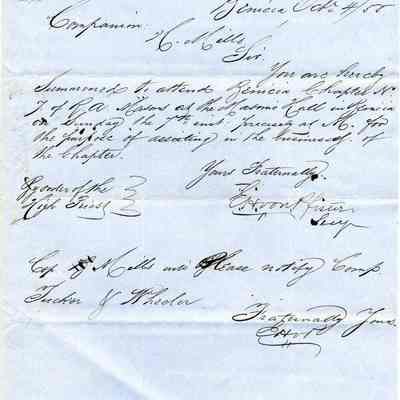 Benicia Oct 4/55
Companion
H. Mills
Sir
You are hereby
Summoned to attend Benicia Chapter No
7 of R A Masons at the Masonic Hall in Benicia
on Sunday the 7th inst. precisely at M. for
the purpose of assisting in the business of
the Chapter.
Yours Fraternally
By order of the
High Priest
Secy
Comp Mills will Please notify Comp
Tucker & Wheeler
Fraternally Yours